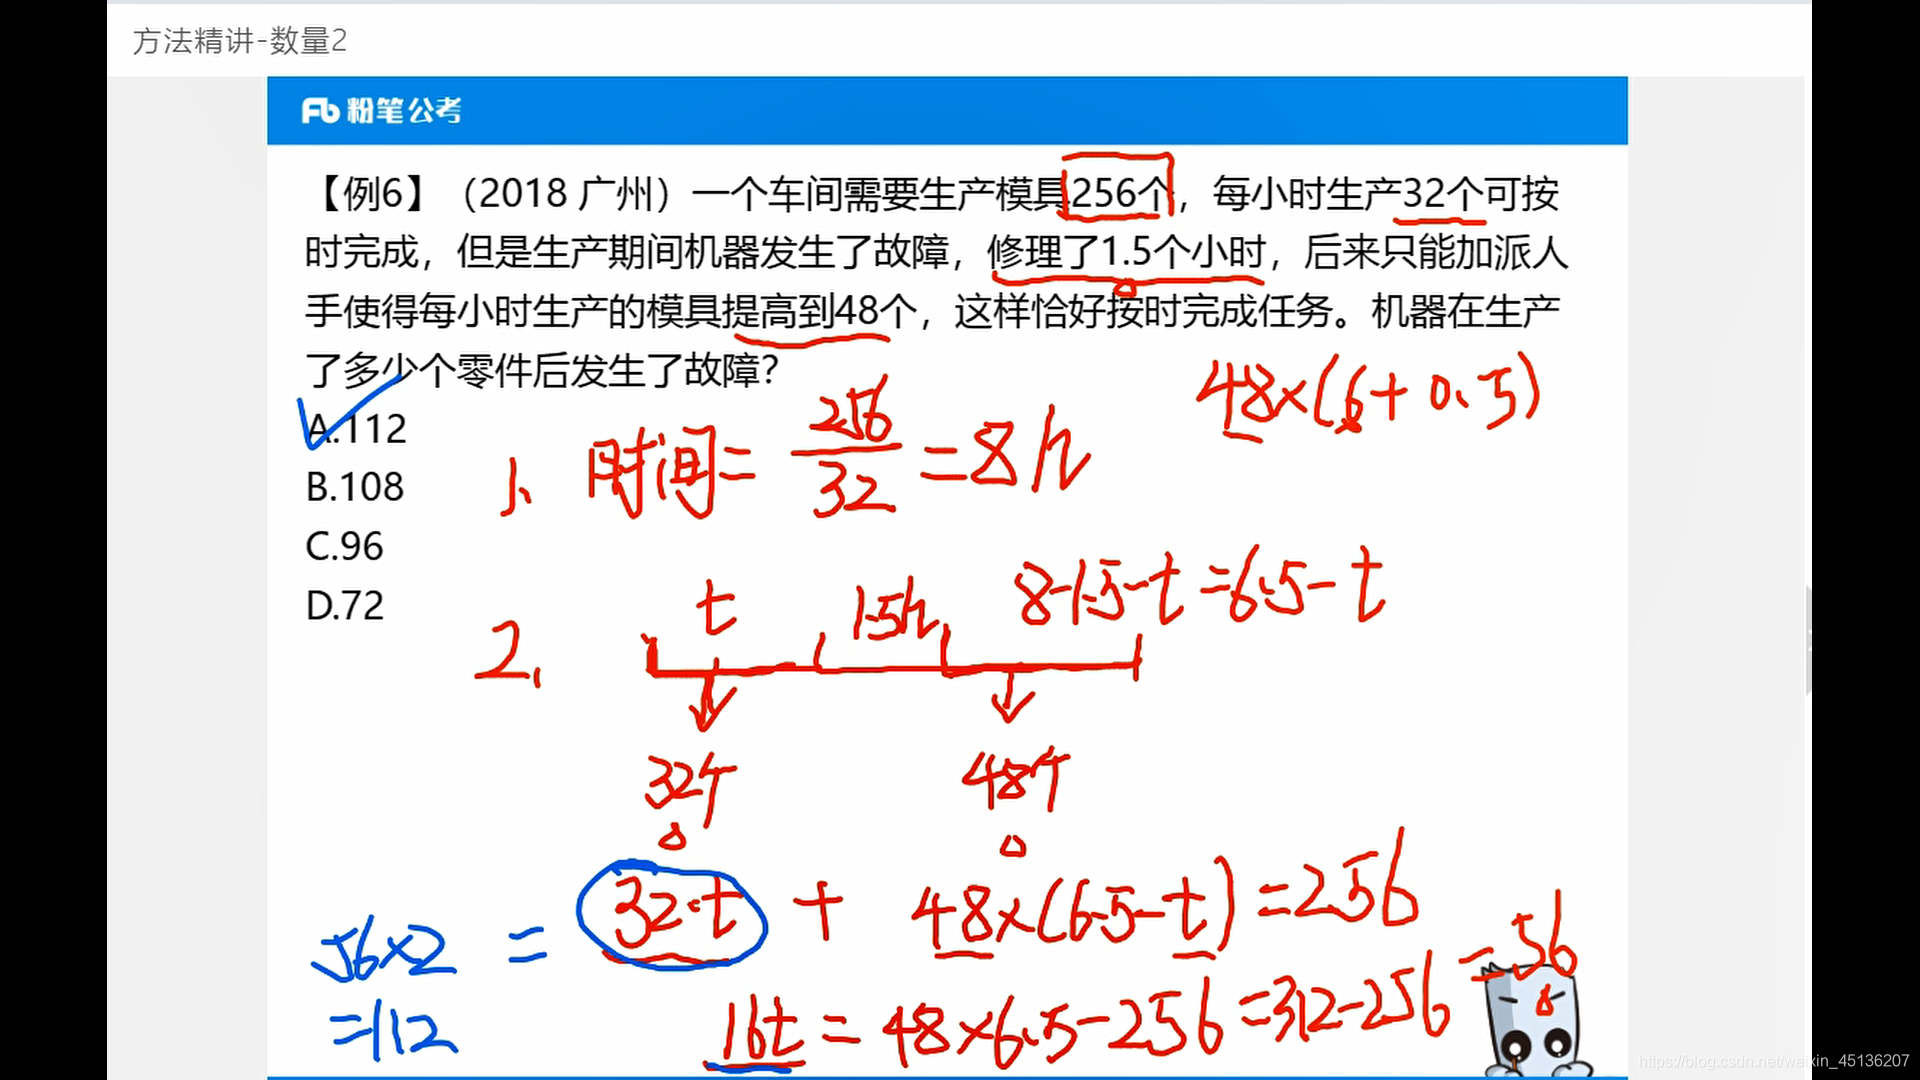 方法精讲-数量2
Fb 粉笔公考
【例6】（2018 广州）一个车间需要生产模具256个，每小时生产32个可按
时完成，但是生产期间机器发生了故障，修理了1.5个小时，后来只能加派人
手使得每小时生产的模具提高到48个，这样恰好按时完成任务。机器在生产
了多少个零件后发生了故障？
48×(6+0.5)
A.112
B.108
C.96
D.72
1、时间=256/32=8h
2、
t 1.5h 8-1.5-t=6.5-t
32个 48个
32·t + 48×(6.5-t)=256
16t=48×6.5-256=312-256=56
56×2 =
=112
https://blog.csdn.net/weixin_45136207